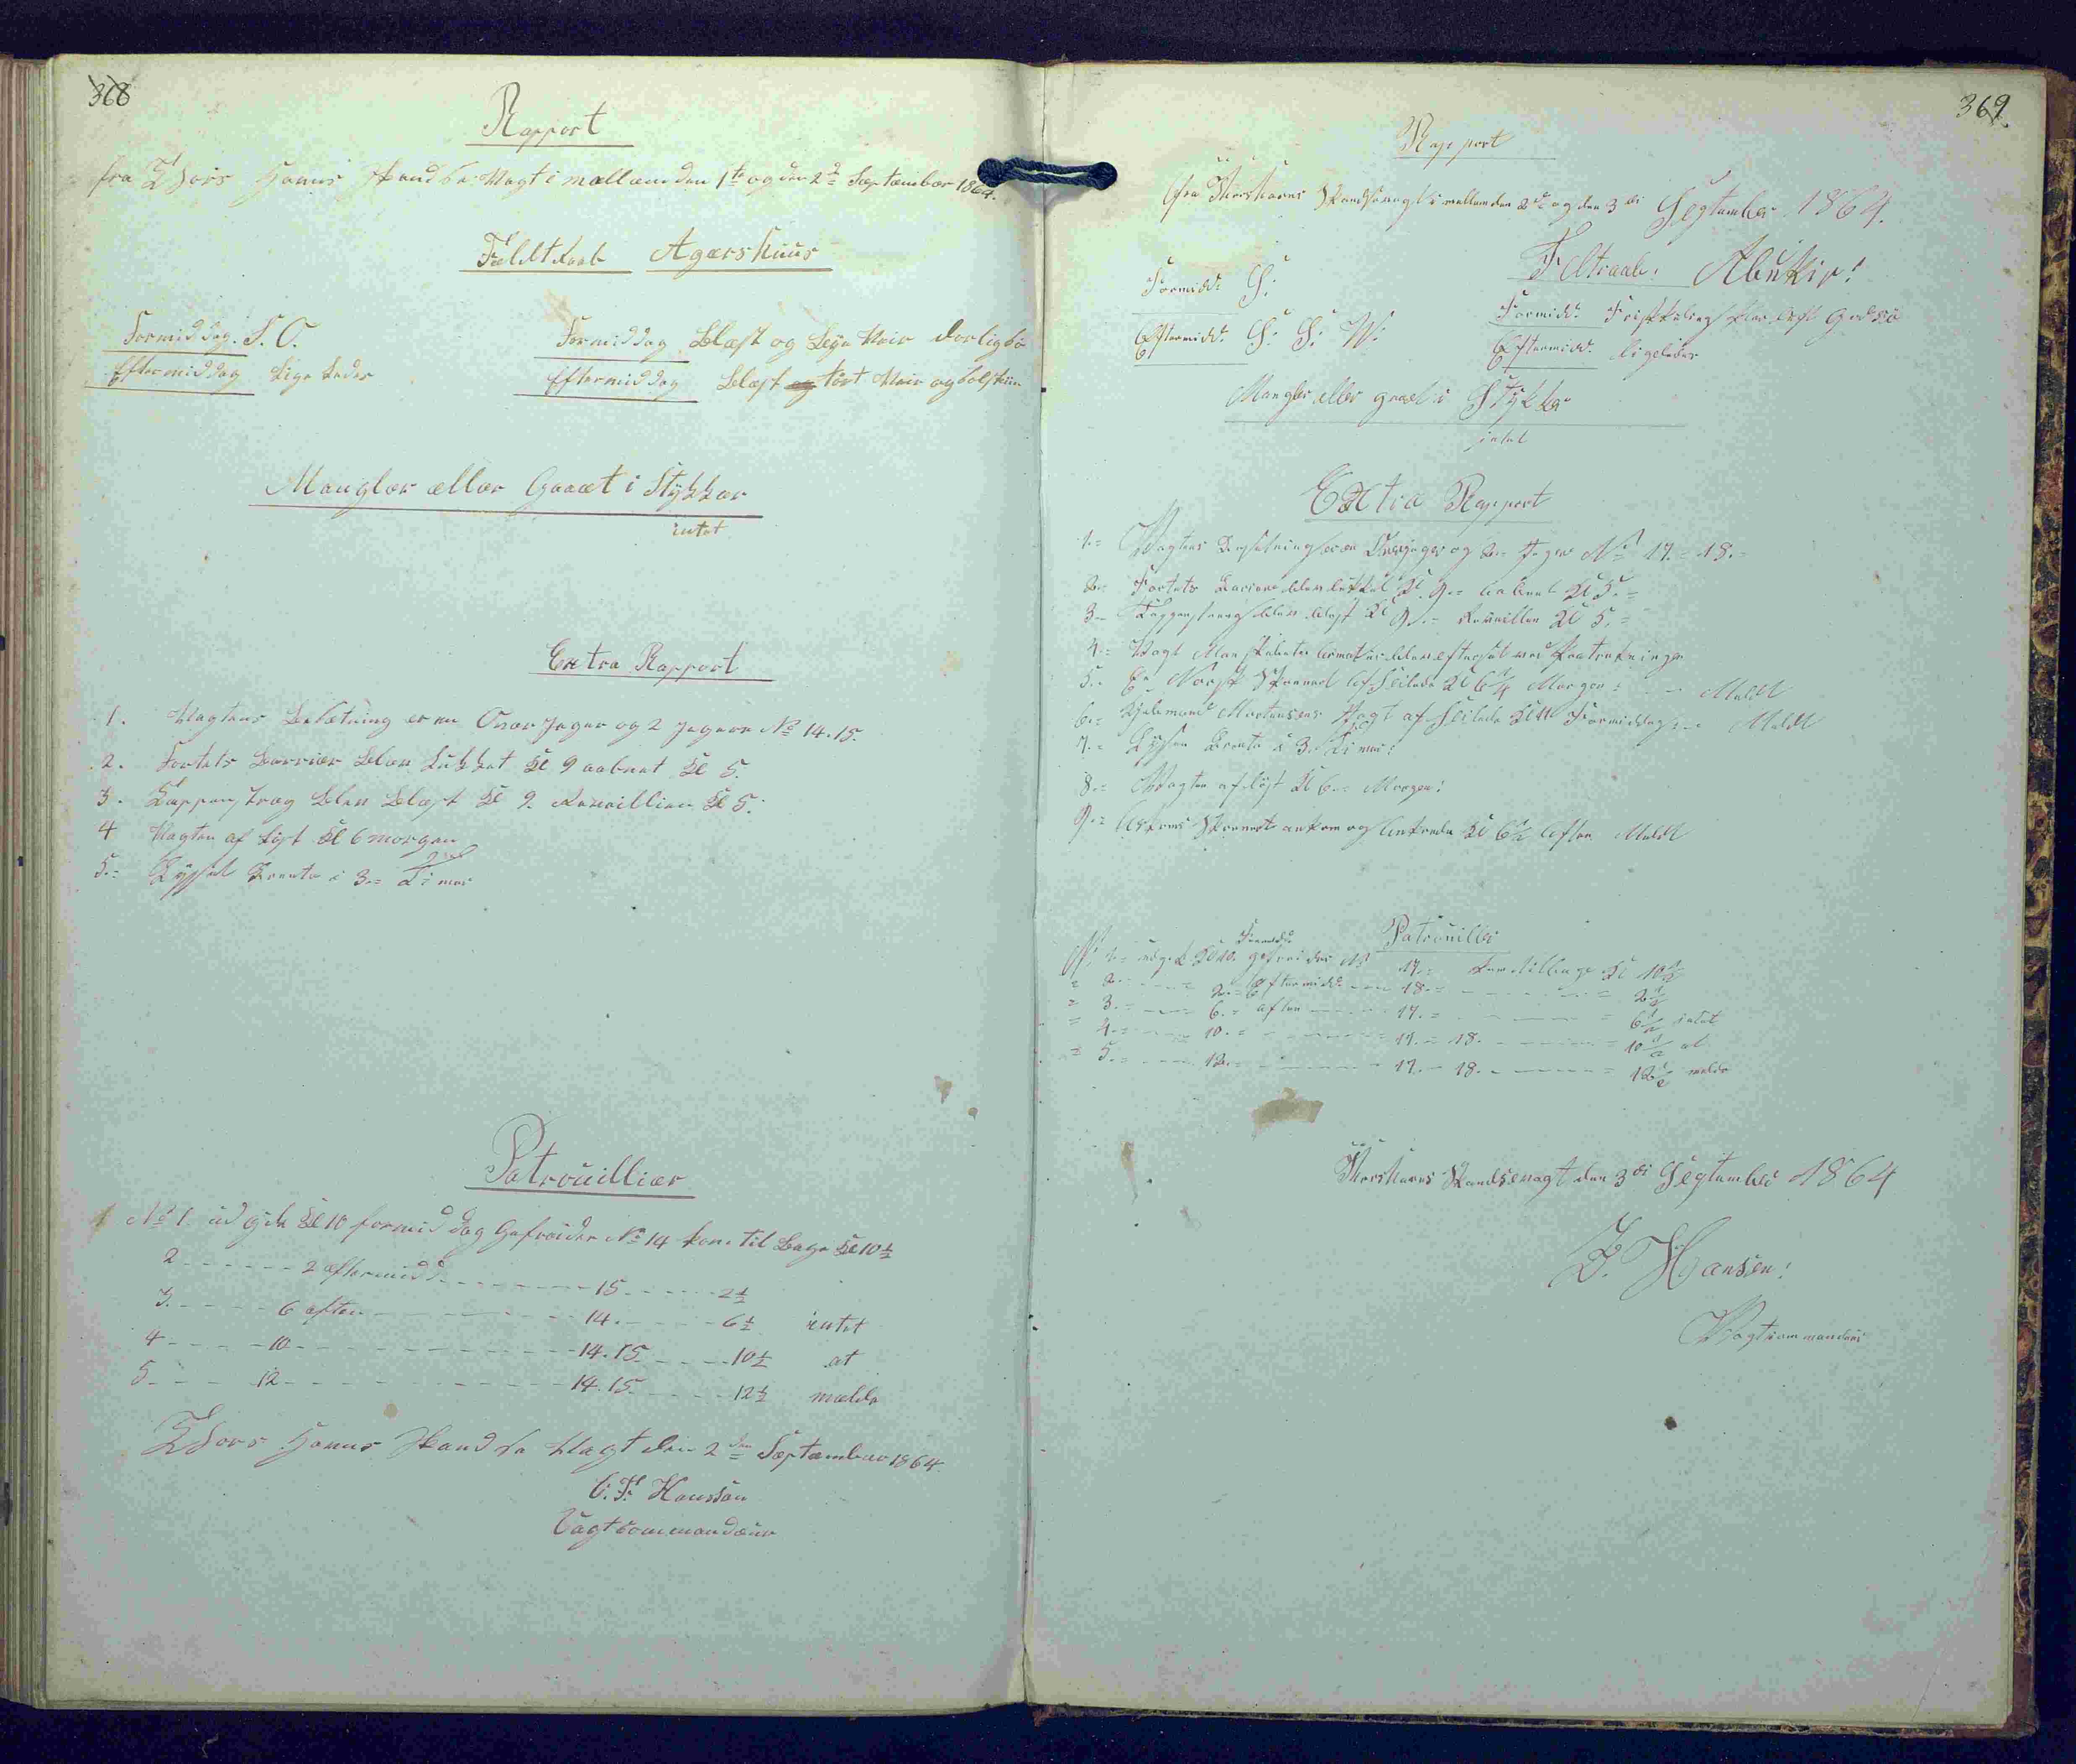 368
Rapport
fra Thors Havns Skandse Vagt i mællem den 1te og den 2d Sæptember 1864.
Fældtraab Agærshuus
Formiddag. S. O.
Formiddag Blæst og Regn Veir dorlig sö
Eftermiddag Lige Ledes
Eftermiddag Blæst tört Veir og solskin
Manglær æller Gaaæt i Stykkær
intet
Extra Rapport
1. Vagtens Besætning er en Overjæger og 2 Jægere No 14. 15.
2. Fortets Barriær blev Lukket Kl 9 aabnet Kl 5.
3. Tappenstræg blev Blæst Kl 9. Reveillien Kl 5.
4 Vagten af Löst Kl 6 morgen
5.= Lyset Brente i 3.= Timer
Patrouilliær
No 1. ud gik Kl 10 formiddag Gefreider No 14 kom til Bage Kl 10½
2 - - - - - - 2 eftermidd. - - - - - - 15 - - - - - 2½
3. - - - - 6 aften - - - - - - 14. - - - - - 6½ intet
4 - - - - 10 - - - - - - - 14. 15 - - - - 10½ at
5 - - - - 12 - - - - - - - 14. 15. - - - - 12½ mælde
Thors Havns Skandse Vagt den 2den Sæptember 1864.
C. F. Hanssen
Vagtcommandeur
369.
Rapport
fra Thorshavns Skandsevagt i mellem den 2den og den 3di September 1864.
Feltraab: Abukir!
Formidd: S:
Formidd:
Eftermidd: S: S: W:
Eftermidd: ligeledes
Mangler eller gaaet i Stykker
intet
Extra Rapport
1.= Vagtens Besætning er en Overjæger og 2.= Jægere No 17.= 18.=
2.= Fortets Bariere blev lukket Kl 9.= aabnet Kl 5.=
3.= Tappenstræg blev blæst Kl 9.= Reveillen Kl 5.=
4.= Vagt Mandskabets Armatur blev efterset ved
5.= En Norsk Skonnert afseilede Kl 6¼ Morgen: - - Meldt
6.= Mortensens Jagt afseilede Kl 11 Formiddag - - Meldt
7.= Lyset Brente i 3. Timer:
8.= Vagten aflöst Kl 6.= Morgen:
9.= Skonnert ankom og ankrede Kl 6½ Aften Meldt
Patrouiller
No 1.= udgik Kl 10. Formidd: gefreider No 17.= kom tilbage Kl 10½
= 2.= - - - = 2.= Eftermidd. - - - 18.= - - - - = 2½
= 3.= - - - 6.= aften - - - - 17.= - - - - = 6½ intet
= 4.= - - - 10.= - - - - - = 17.= 18. - - - - = 10½ at
= 5.= - - - 12.= - - - - - - 17.= 18. - - - - = 12½ melde
Thorshavns Skandsevagt den 3di September 1864
Hansen:
Vagtcommandeur